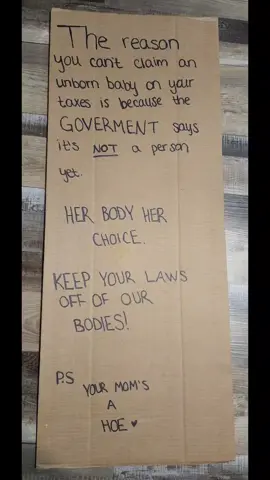 The reason
you can't claim an
unborn baby on your
taxes is because the
GOVERMENT says
it's NOT a person
yet.
HER BODY HER
CHOICE.
KEEP YOUR LAWS
OFF OF OUR
BODIES!
P.S
YOUR MOM'S
A
HOE ♥